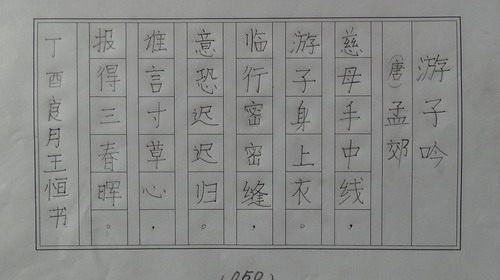 游子吟
(唐)孟郊
慈母手中线，
游子身上衣。
临行密密缝，
意恐迟迟归。
谁言寸草心，
报得三春晖。
丁酉良月王恒书